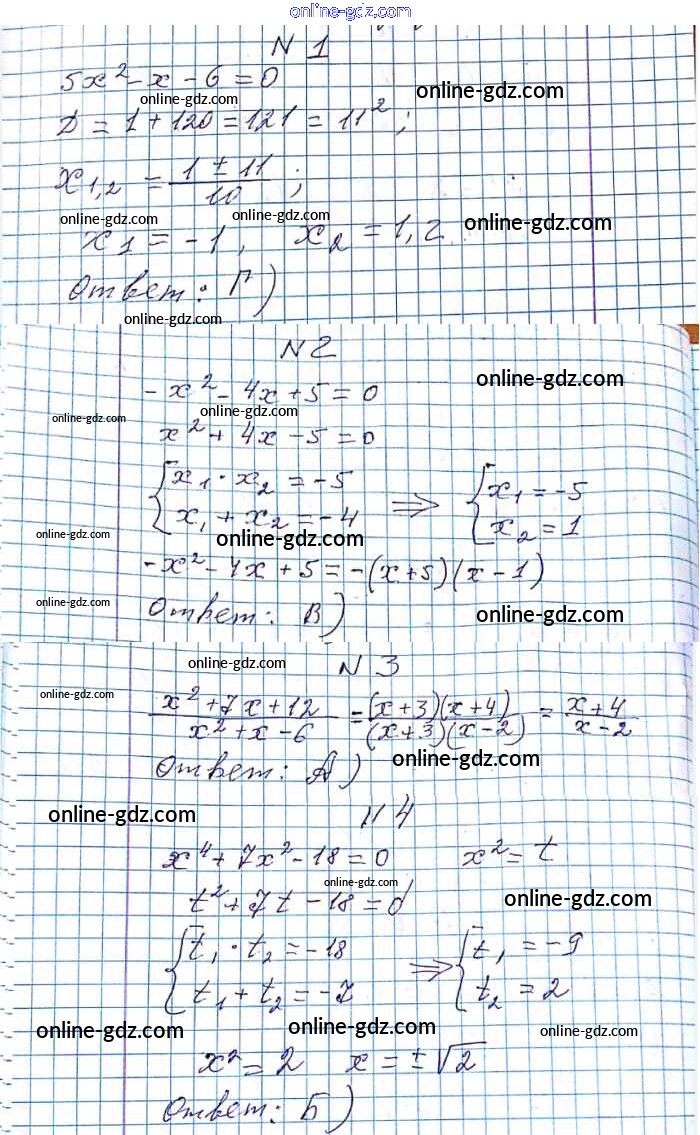 online-gdz.com
N 1
5x² - x - 6 = 0
online-gdz.com
online-gdz.com
D = 1 + 120 = 121 = 11²;
x₁,₂ = (1 ± 11)/10;
online-gdz.com
online-gdz.com
online-gdz.com
x₁ = -1, x₂ = 1,2
Ответ: Г)
online-gdz.com
N 2
online-gdz.com
-x² - 4x + 5 = 0
online-gdz.com
online-gdz.com
x² + 4x - 5 = 0
{x₁ · x₂ = -5
{x₁ + x₂ = -4
⇒ {x₁ = -5
{x₂ = 1
online-gdz.com
online-gdz.com
-x² - 4x + 5 = -(x+5)(x-1)
online-gdz.com
Ответ: В)
online-gdz.com
online-gdz.com
N 3
online-gdz.com
(x² + 7x + 12)/(x² + x - 6) = (x+3)(x+4)/(x+3)(x-2) = (x+4)/(x-2)
online-gdz.com
Ответ: А)
online-gdz.com
N 4
x⁴ + 7x² - 18 = 0 x² = t
online-gdz.com
t² + 7t - 18 = 0
online-gdz.com
{t₁ · t₂ = -18
{t₁ + t₂ = -7
⇒ {t₁ = -9
{t₂ = 2
online-gdz.com
online-gdz.com
online-gdz.com
x² = 2 x = ±√2
Ответ: Б)